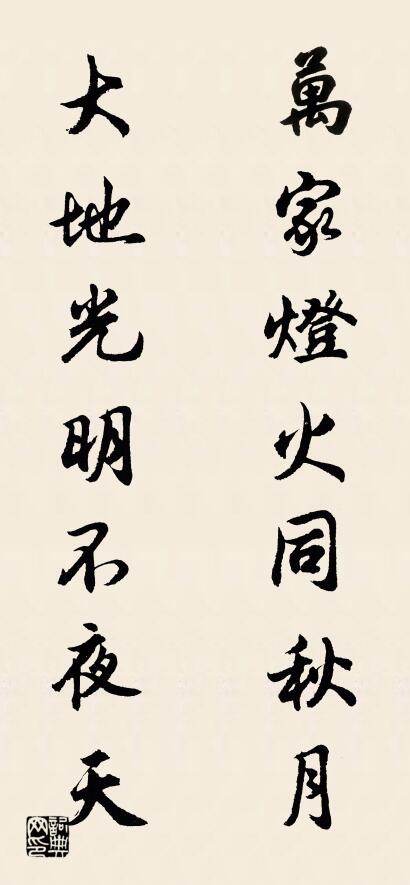 萬家燈火同秋月
大地光明不夜天